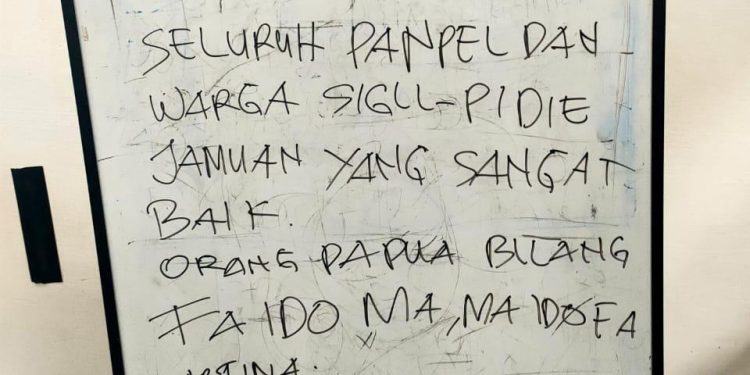 SELURUH PANPEL DAN
WARGA SIGLI-PIDIE
JAMUAN YANG SANGAT
BAIK.
ORANG PAPUA BILANG
FA IDO MA, MA IDO FA